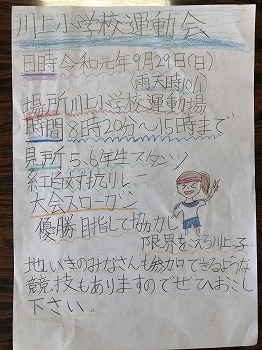 川上小学校運動会
日時令和元年9月29日(日)
(雨天時10/1)
場所川上小学校運動場
時間8時20分～15時まで
見所5、6年生スタンツ
紅白対抗リレー
大会スローガン
優勝目指して協力し
限界をこえろ川上っ子
地いきのみなさんも参加できるような
競技もありますのでぜひおこし
下さい。